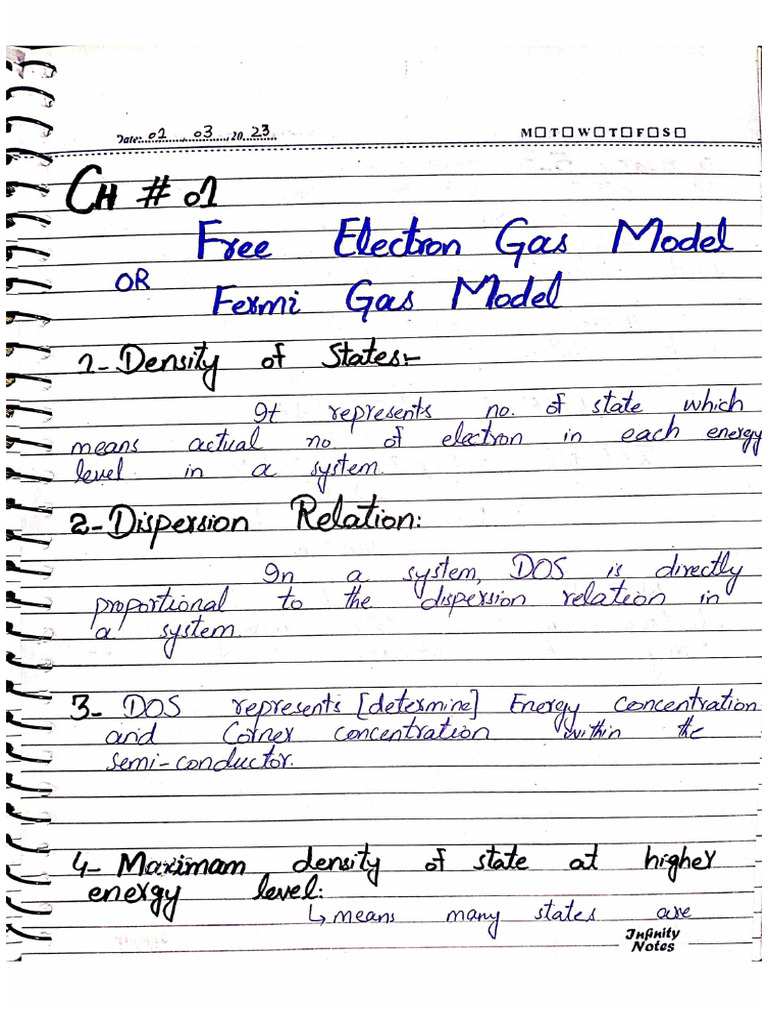 Date: 01, 03, 20 23 M☐T☐W☐T☐F☐S☐
CH # 01
Free Electron Gas Model
OR
Fermi Gas Model
1- Density of States:-
It represents no. of state which
means actual no. of electron in each energy
level in a system.
2- Dispersion Relation:
In a system, DOS is directly
proportional to the dispersion relation in
a system.
3- DOS represents [determine] Energy concentration
and concentration within the
semi-conductor.
4- Maximam density of state at higher
energy level:
↳ means many states are
Infinity
Notes